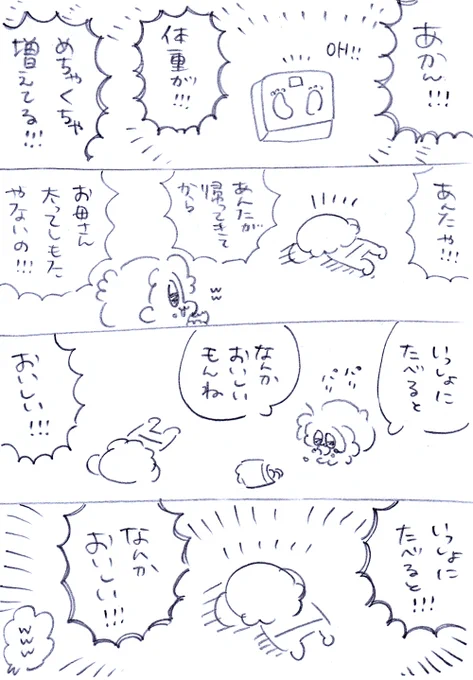 あかん!!!
OH!!
体重が!!!
めちゃくちゃ
増えてる!!!
あんたや!!!
あんたが
帰ってきて
から
お母さん
太ってしもた
やないの!!!
ww
いっしょに
たべると
なんか
おいしい
もんね
おいしい!!!
いっしょに
たべると!!!
なんか
おいしい!!!
www